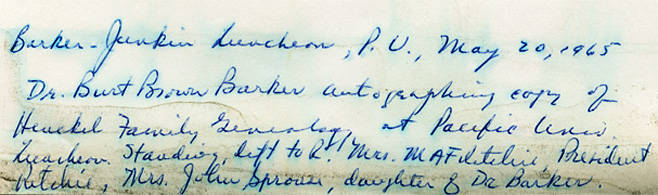 Barker-Junkin Luncheon, P. U., May 20, 1965
Dr. Burt Brown Barker autographing copy of
Henckel Family Genealogy at Pacific Univ.
Luncheon. Standing, left to R. Mrs. M A F Ritchie, President
Ritchie, Mrs. John Sprouse, daughter of Dr Barker